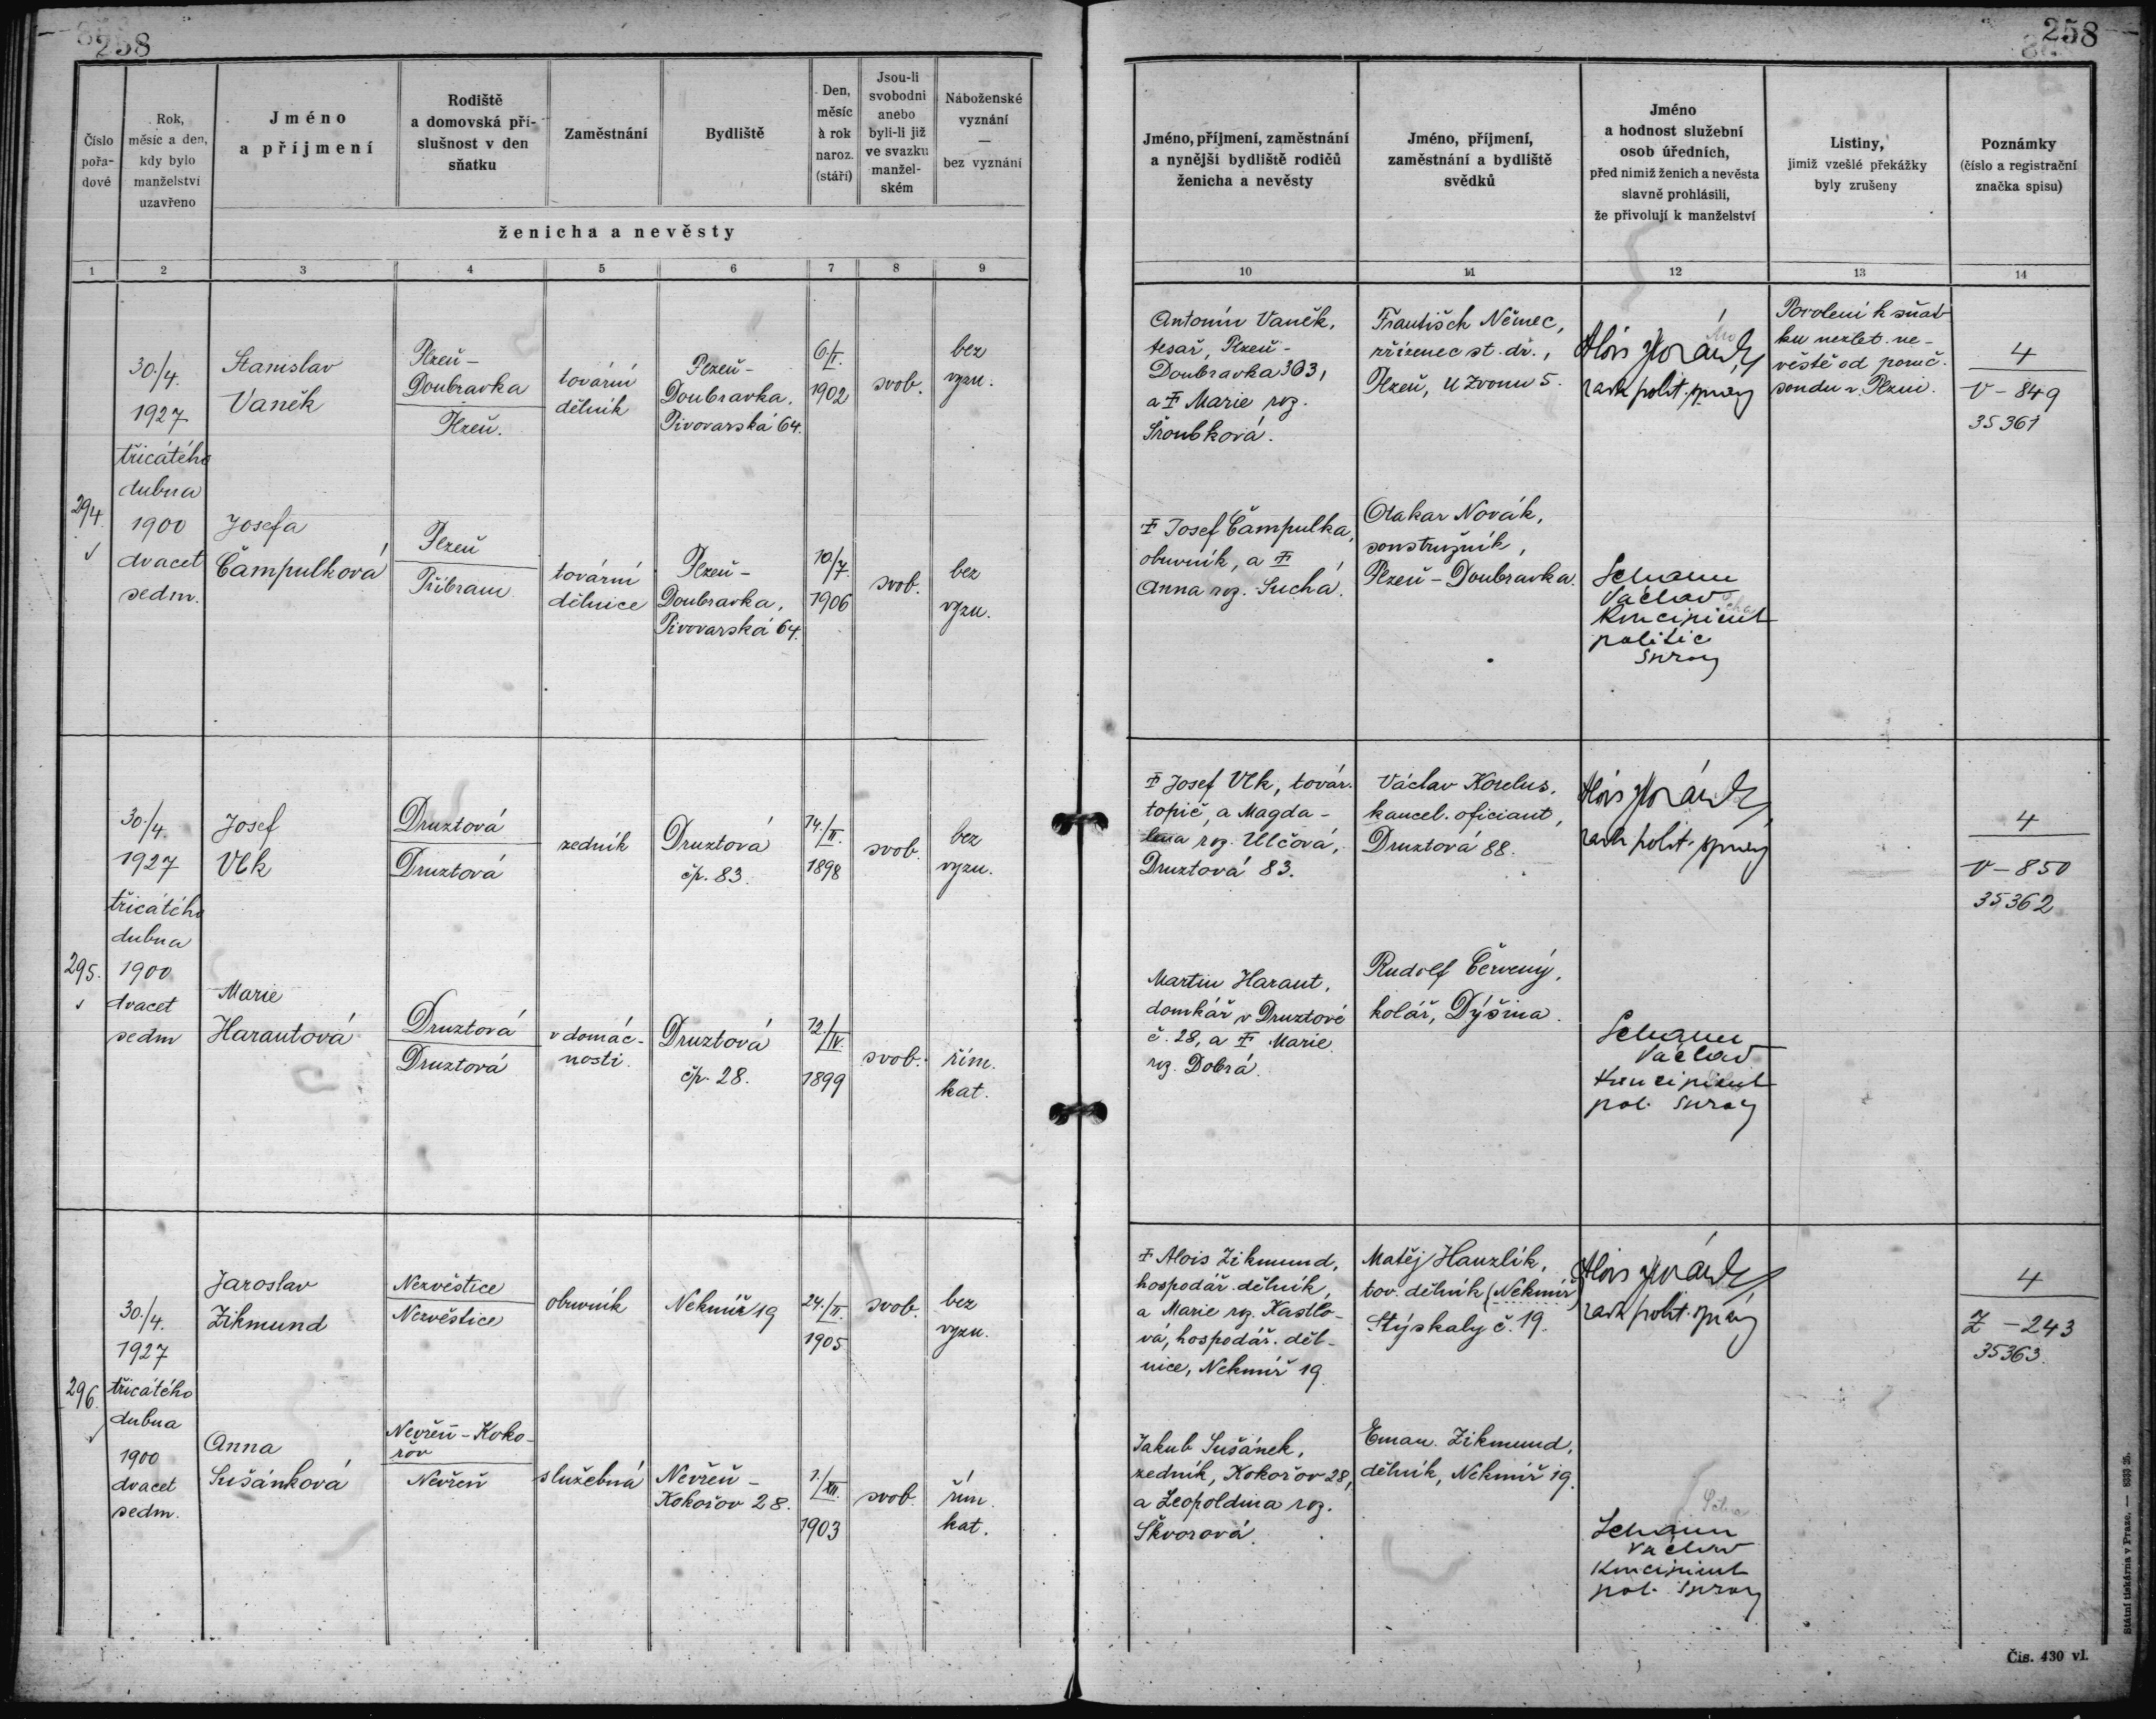 258
258
Číslo pořa-dové
Rok, měsíc a den, kdy bylo manželství uzavřeno
Jméno a příjmení
Rodiště a domovská pří-slušnost v den sňatku
Zaměstnání
Bydliště
Den, měsíc a rok naroz. (stáří)
Jsou-li svobodni anebo byli-li již ve svazku manžel-ském
Náboženské vyznání — bez vyznání
ženicha a nevěsty
Jméno, příjmení, zaměstnání a nynější bydliště rodičů ženicha a nevěsty
Jméno, příjmení, zaměstnání a bydliště svědků
Jméno a hodnost služební osob úředních, před nimiž ženich a nevěsta slavně prohlásili, že přivolují k manželství
Listiny, jimiž vzešlé překážky byly zrušeny
Poznámky (číslo a registrační značka spisu)
1 2 3 4 5 6 7 8 9 10 11 12 13 14
294
30./4.
1927
třicátého
dubna
1900
dvacet
sedm.
Stanislav
Vaněk
Plzeň-
Doubravka
Plzeň.
tovární
dělník
Plzeň-
Doubravka,
Pivovarská 64.
6./II.
1902
svob.
bez
vyzn.
Antonín Vaněk,
tesař, Plzeň-
Doubravka 303,
a ‡ Marie roz.
Šroubková.
František Němec,
zřízenec st. dr.,
Plzeň, U Zvonu 5.
Alois
rada polit. správy
Povolení k sňat-
ku nezlet. ne-
věstě od poruč.
soudu v Plzni.
4
V-849
35361
Josefa
Čampulková
Plzeň
Příbram
tovární
dělnice
Plzeň-
Doubravka,
Pivovarská 64.
10/7.
1906
svob.
bez
vyzn.
‡ Josef Čampulka,
obuvník, a ‡
Anna roz. Suchá.
Otakar Novák,
soustružník,
Plzeň-Doubravka.
Václav
Koncipient
politic
správy
295.
30./4.
1927
třicátého
dubna
1900
dvacet
sedm
Josef
Vlk
Druztová
Druztová
zedník
Druztová
čp. 83.
14./II.
1898
svob.
bez
vyzn.
‡ Josef Vlk, továr.
topič, a Magda-
lena roz. Ulčová,
Druztová 83.
Václav Korelus,
kancel. oficiant,
Druztová 88.
Alois
rada polit. správy
4
V-850
35362
Marie
Harautová
Druztová
Druztová
v domác-
nosti.
Druztová
čp. 28.
12./IV.
1899
svob.
řím.
kat.
Martin Haraut,
domkář v Druztové
č. 28, a ‡ Marie
roz. Dobrá.
Rudolf Červený,
kolář, Dýšina.
Václav
Koncipient
pol. správy
296.
30./4.
1927
třicátého
dubna
1900
dvacet
sedm.
Jaroslav
Zikmund
Nezvěstice
Nezvěstice
obuvník
Nekmíř 19
24./II.
1905
svob.
bez
vyzn.
‡ Alois Zikmund,
hospodář. dělník,
a Marie roz. Kastlo-
vá, hospodář. děl-
nice, Nekmíř 19.
Matěj Hanzlík,
tov. dělník (Nekmíř)
Stýskaly č. 19.
Alois
rada polit. správy
4
Z-243
35363.
Anna
Sušánková
Nevřeň-Koko-
řov
Nevřeň
služebná
Nevřeň-
Kokořov 28.
1./XII.
1903
svob.
řím.
kat.
Jakub Sušánek,
zedník, Kokořov 28,
a Leopoldina roz.
Škvorová.
Eman. Zikmund,
dělník, Nekmíř 19.
Václav
Koncipient
pol. správy
Státní tiskárna v Praze.
Čís. 430 vl.